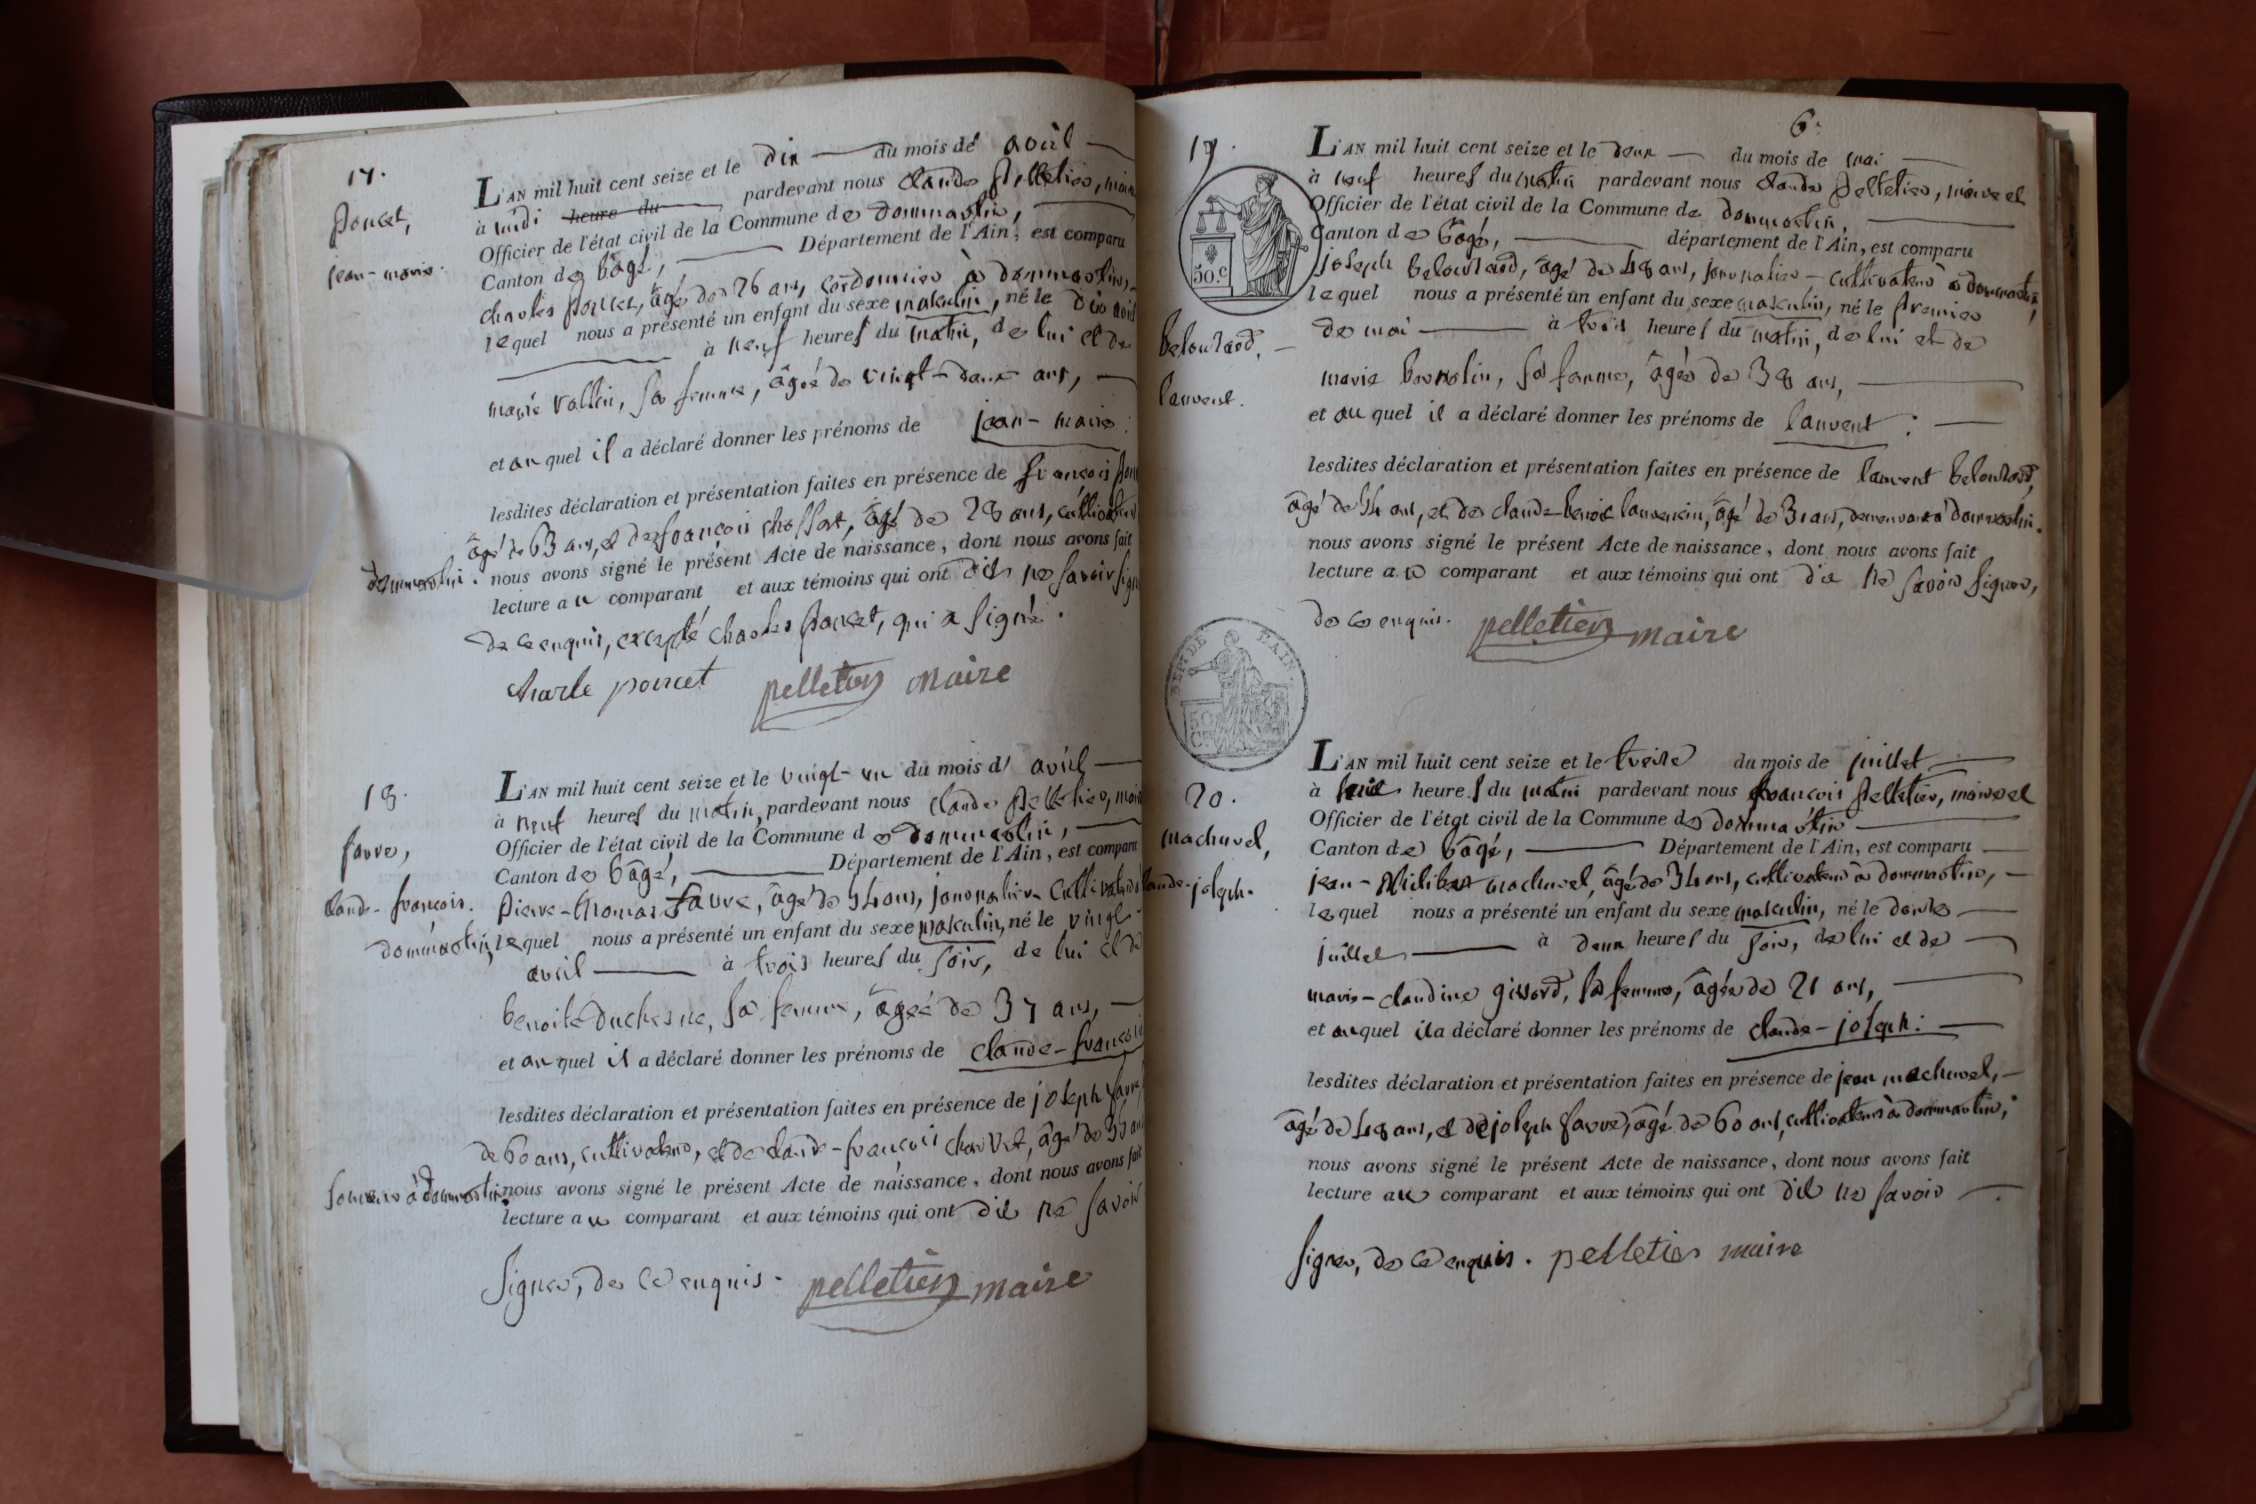 17.
poncet,
jean-marie.
L'AN mil huit cent seize et le dix du mois de avril
à midi heure du pardevant nous claude pelletier, maire
Officier de l'état civil de la Commune de dommartin,
Canton de bâgé, Département de l'Ain, est comparu
charles poncet, âgé de 26 ans, cordonnier à dommartin,
lequel nous a présenté un enfant du sexe masculin, né le dix avril
à neuf heures du matin, de lui et de
marie vallin, sa femme, âgée de vingt-deux ans,
et auquel il a déclaré donner les prénoms de jean-marie:
lesdites déclaration et présentation faites en présence de françois
âgé de 63 ans, et de françois choffat, âgé de 28 ans, cultivateurs
dommartin. nous avons signé le présent Acte de naissance, dont nous avons fait
lecture au comparant et aux témoins qui ont dit ne savoir
de ce enquis, excepté charles poncet, qui a signé.
charle poncet pelletier maire
18.
favre,
claude-françois.
L'AN mil huit cent seize et le vingt-un du mois d' avril
à neuf heures du matin, pardevant nous claude pelletier, maire
Officier de l'état civil de la Commune de dommartin,
Canton de bâgé, Département de l'Ain, est comparu
pierre-thomas favre, âgé de 34 ans, journalier-cultivateur
dommartin, lequel nous a présenté un enfant du sexe masculin, né le vingt
avril à trois heures du soir, de lui et de
benoite duchesne, sa femme, âgée de 37 ans,
et auquel il a déclaré donner les prénoms de claude-françois
lesdites déclaration et présentation faites en présence de joseph favre,
de 60 ans, cultivateur, et de claude-françois charvet, âgé de 33 ans
à dommartin. nous avons signé le présent Acte de naissance, dont nous avons fait
lecture au comparant et aux témoins qui ont dit ne savoir
signer, de ce enquis. pelletier maire
6.
19.
50.c
belouzard,
laurent.
L'AN mil huit cent seize et le deux du mois de mai
à neuf heures du matin pardevant nous claude pelletier, maire et
Officier de l'état civil de la Commune de dommartin,
Canton de bâgé, département de l'Ain, est comparu
joseph belouzard, âgé de 48 ans, journalier-cultivateur à dommartin,
lequel nous a présenté un enfant du sexe masculin, né le premier
de mai à trois heures du matin, de lui et de
marie, sa femme, âgée de 38 ans,
et auquel il a déclaré donner les prénoms de laurent:
lesdites déclaration et présentation faites en présence de laurent belouzard,
âgé de 54 ans, et de claude-benoit laurencin, âgé de 31 ans, demeurant à dommartin.
nous avons signé le présent Acte de naissance, dont nous avons fait
lecture au comparant et aux témoins qui ont dit ne savoir signer,
de ce enquis. pelletier maire
20.
machurel,
claude-joseph.
L'AN mil huit cent seize et le treize du mois de juillet
à huit heures du matin pardevant nous françois pelletier, maire et
Officier de l'état civil de la Commune de dommartin
Canton de bâgé, Département de l'Ain, est comparu
jean-philibert machurel, âgé de 34 ans, cultivateur à dommartin,
lequel nous a présenté un enfant du sexe masculin, né le douze
juillet à deux heures du soir, de lui et de
marie-claudine gissord, sa femme, âgée de 21 ans,
et auquel il a déclaré donner les prénoms de claude-joseph:
lesdites déclaration et présentation faites en présence de jean machurel,
âgé de 48 ans, et de joseph favre, âgé de 60 ans, cultivateurs à dommartin,
nous avons signé le présent Acte de naissance, dont nous avons fait
lecture au comparant et aux témoins qui ont dit ne savoir
signer, de ce enquis. pelletier maire